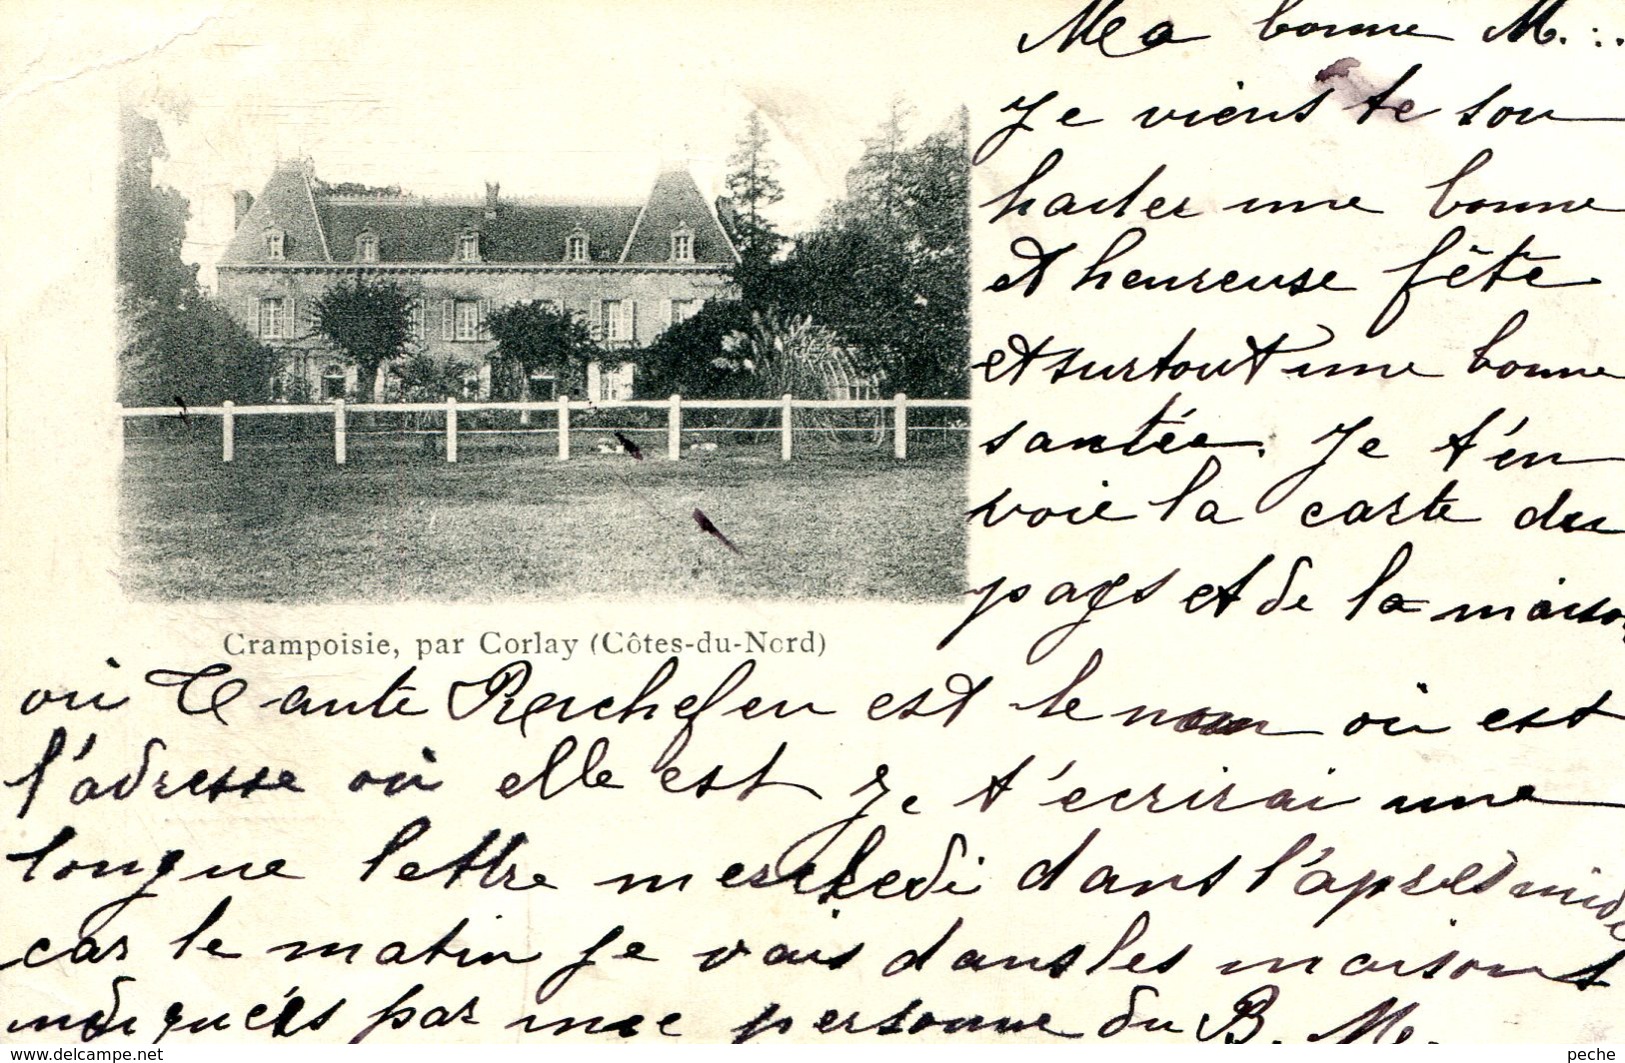 Ma bonne M. ...
Je viens te sou
haiter une bonne
et heureuse fête
et surtout une bonne
santée. Je t'en
voie la carte du
pays et de la maison
Crampoisie, par Corlay (Côtes-du-Nord)
où Tante est le nom où est
l'adresse où elle est Je t'ecrirai une
longue lettre mercredi dans l'après midi
car le matin je vais dans les maisons
indiquées par une personne du B. M.
peche
www.delcampe.net